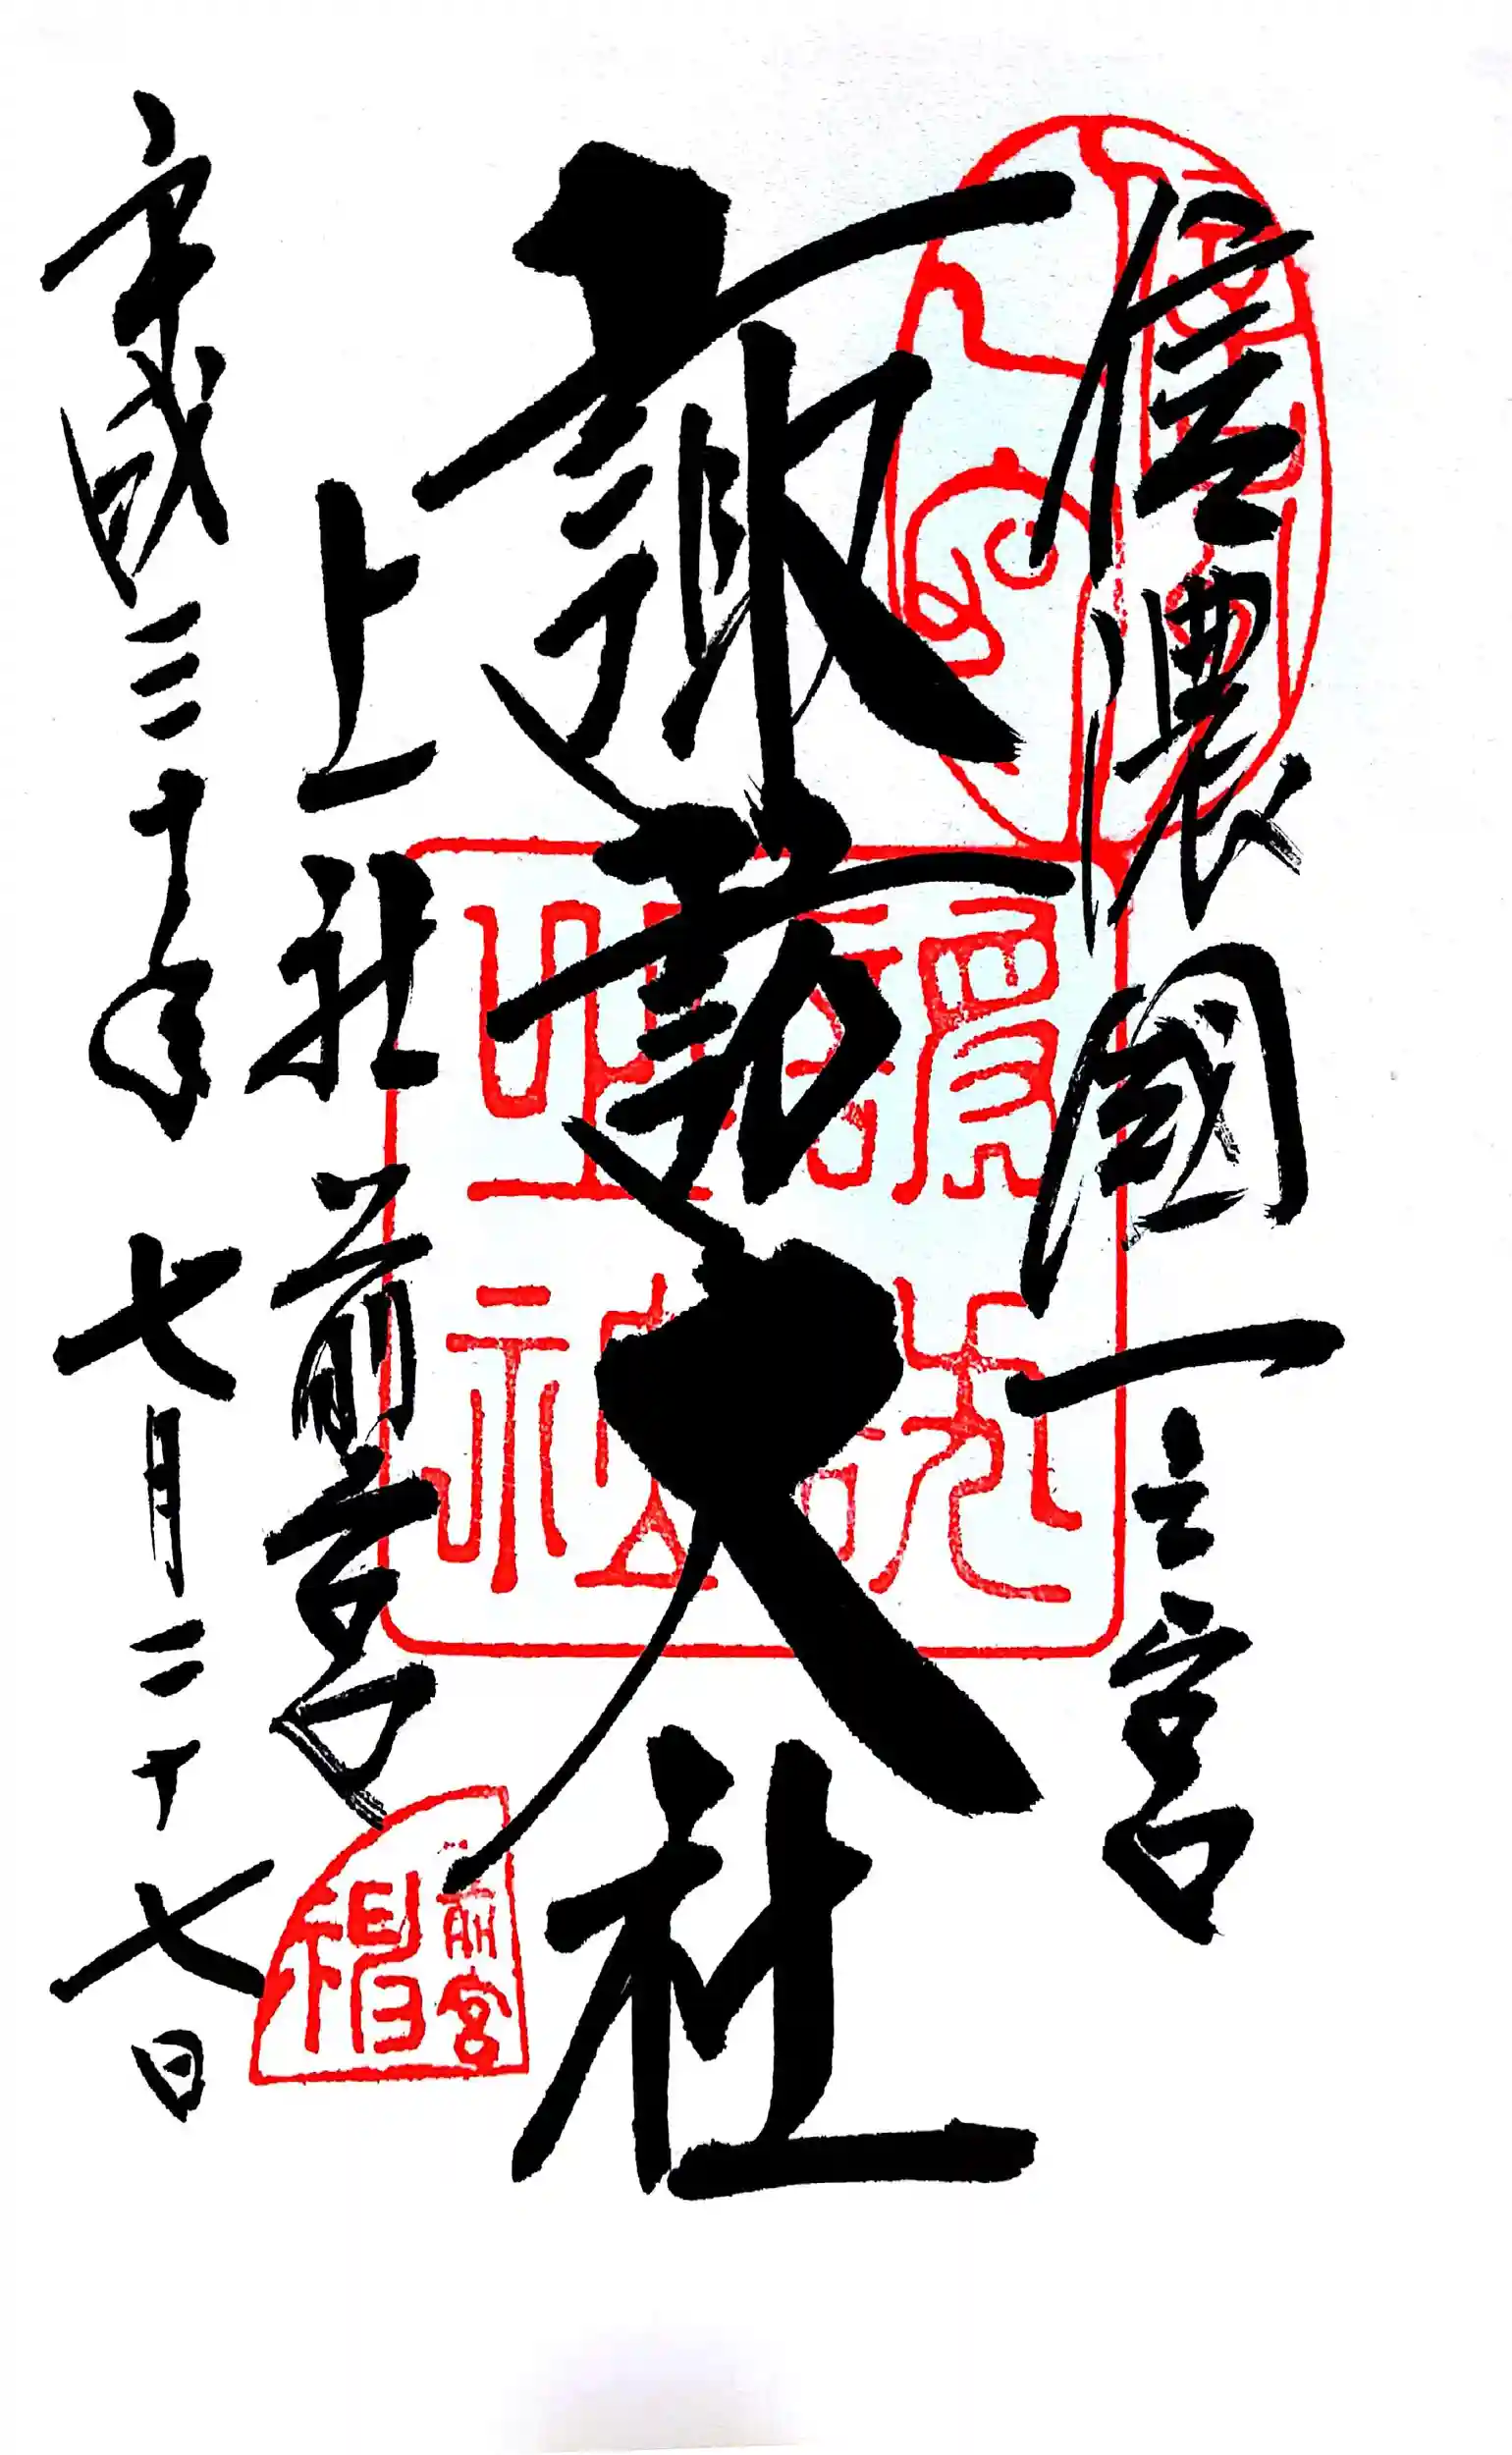 信濃國一之宮
諏訪大社
上社前宮
平成三十年七月二十七日
前宮